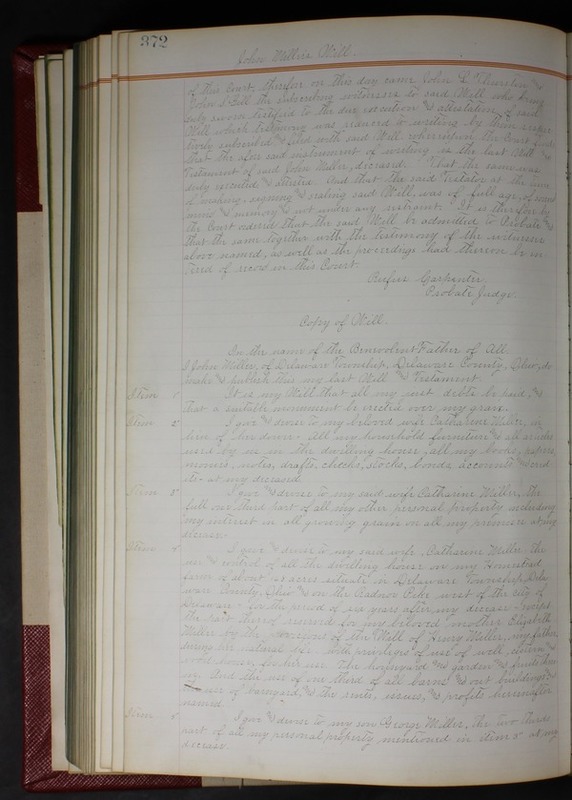 372
John Miller's Will.
of this Court, therefor on this day came John L. Thurston &
John S. Gill the subscribing witnesses to said Will who being
duly sworn testified to the due execution & attestation of said
Will which testimony was reduced to writing by them respec
tively subscribed & filed with said Will whereupon the Court finds
that the afore said instrument of writing is the last Will &
Testament of said John Miller, deceased. That the same was
duly executed & attested. And that the said Testator at the time
of making, signing & sealing said Will, was of full age, of sound
mind & memory & not under any restraint. It is therefore by
the Court ordered that the said Will be admitted to Probate &
that the same together with the testimony of the witnesses
above named, as well as the proceedings had thereon be en
tered of record in this Court.
Rufus Carpenter
Probate Judge.
Copy of Will.
In the name of the Benevolent Father of All.
I John Miller, of Delaware Township, Delaware County, Ohio, do
make & publish this my last Will & Testament.
Item 1st It is my Will that all my just debts be paid, &
that a suitable monument be erected over my grave.
Item 2nd I give & devise to my beloved wife Catharine Miller, in
lieu of her dower: All my household furniture & all articles
used by us in the dwelling house, all my books, papers,
monies, notes, drafts, checks, stocks, bonds, accounts & cred
its at my decease.
Item 3rd I give & devise to my said wife Catharine Miller, the
full one third part of all my other personal property including
my interest in all growing grain on all my premises at my
decease.
Item 4 I give & devise to my said wife, Catharine Miller the
use & control of all the dwelling house on my Homestead
farm of about acres situate in Delaware Township, Dela
ware County, Ohio & on the Radnor Pike west of the city of
Delaware - for the period of six years after my decease - except
the part thereof reserved for my beloved mother Elizabeth
Miller by the provisions of the Will of Henry Miller, my father
during her natural life. With privileges of use of well, cistern &
wood house, for her use. The & garden & fruits there
on. And the use of one third of all barns & out buildings &
the use of barnyard, & the rents, issues, & profits hereinafter
named.
Item 5 I give & devise to my son George Miller, the two thirds
part of all my personal property mentioned in item 3rd at my
decease.